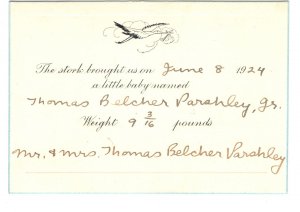 The stork brought us on June 8 1924
a little baby named
Thomas Belcher Parshley, Jr.
Weight 9 3/16 pounds
Mr. & Mrs. Thomas Belcher Parshley